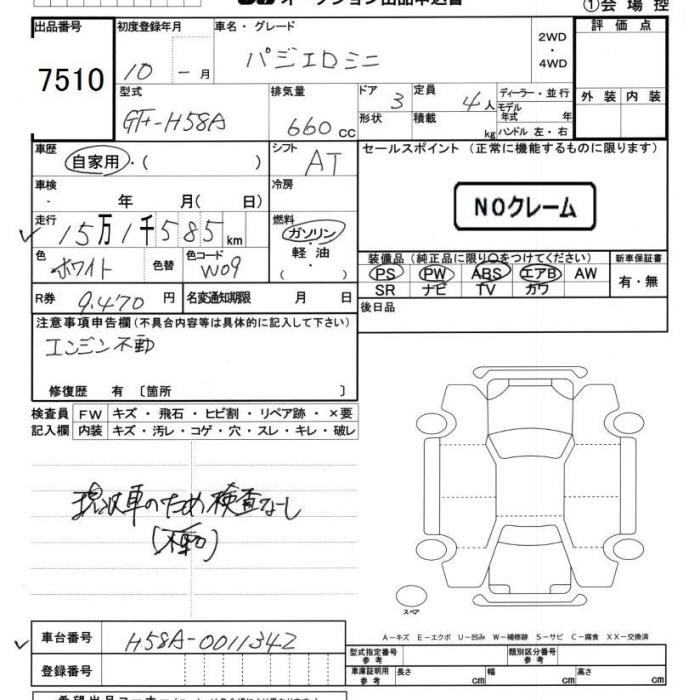 オークション出品申込書
①会場控
出品番号
7510
初度登録年月
10 - 月
車名・グレード
パジェロミニ
2WD
・
4WD
評価点
外装 内装
型式
GF-H58A
排気量
660 cc
ドア 3
定員 4人
形状
積載 kg
ディーラー・並行
モデル年式 年
ハンドル 左・右
車歴
自家用・( )
シフト AT
車検
年 月( 日)
冷房
走行
15万1千585 km
燃料
ガソリン
軽・油
( )
色 ホワイト
色替
色コード W09
R券 9,470 円
名変通知期限 月 日
セールスポイント(正常に機能するものに限ります)
NOクレーム
装備品(純正品に限り○をつけてください)
PS PW ABS エアB AW
SR ナビ TV カワ
新車保証書
有・無
後日品
注意事項申告欄(不具合内容等は具体的に記入して下さい)
エンジン不動
修復歴 有 〔箇所 〕
検査員 FW キズ・飛石・ヒビ割・リペア跡・×要
記入欄 内装 キズ・汚レ・コゲ・穴・スレ・キレ・破レ
現状車のため検査なし
(不動)
スペア
A-キズ E-エクボ U-凹み W-補修跡 S-サビ C-腐食 XX-交換済
車台番号 H58A-0011342
登録番号
型式指定番号
参考
類別区分番号
参考
車庫証明用
参考
長さ cm 幅 cm 高さ cm